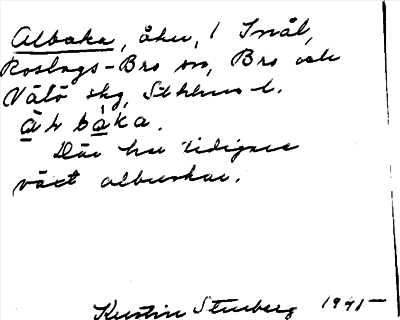 Albaka, åker, 1 Snål,
Roslags-Bro sn, Bro och
Vätö skg, Sthlms l.
àl bàka.
Där har tidigare
växt albuskar.
Kerstin Stenberg 1941